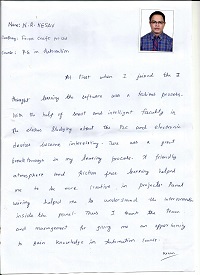 Name: N.R. KESAV
Company: Focus Craft
Course: PG in Automation
At First when I joined the I
thought learning the software was a tedious process.
With the help of smart and intelligent faculty in
the studying about the PLC and electronic
devices became interesting. This was a great
breakthrough in my learning process. A friendly
atmosphere and friction free learning helped
me to be more creative in projects. Panel
wiring helped me to understand the
inside the panel. Thus I thank the Team
and management for giving me an opportunity
to gain knowledge in Automation course.
Kesav